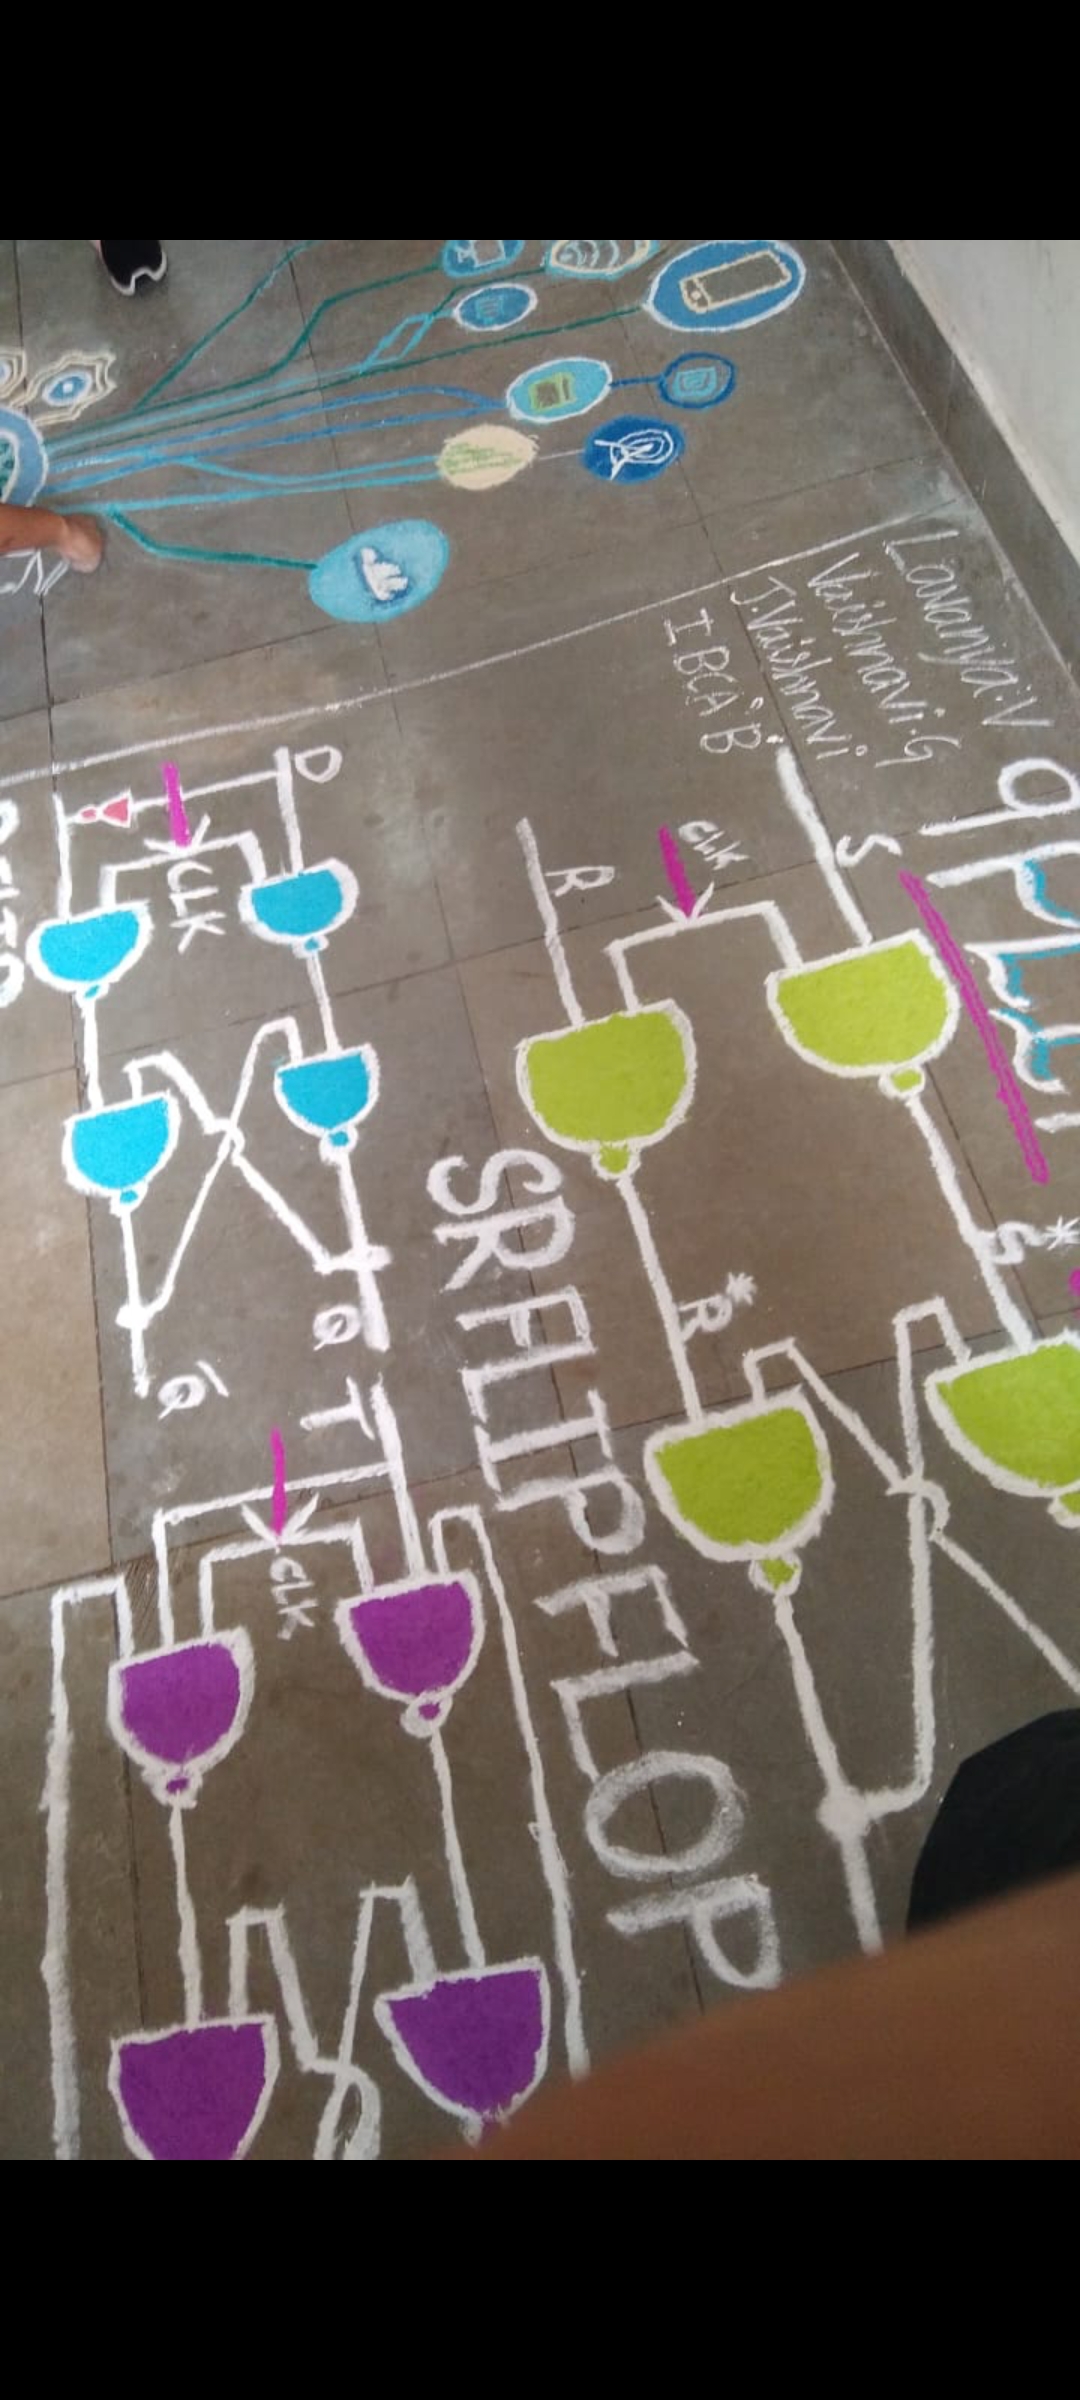 Lavaniya.V
Vaishnavi.G
J.Vaishnavi
I BCA 'B'
S
CLK
R
S*
R*
SR FLIPFLOP
D
CLK
Q
Q̅
T
CLK